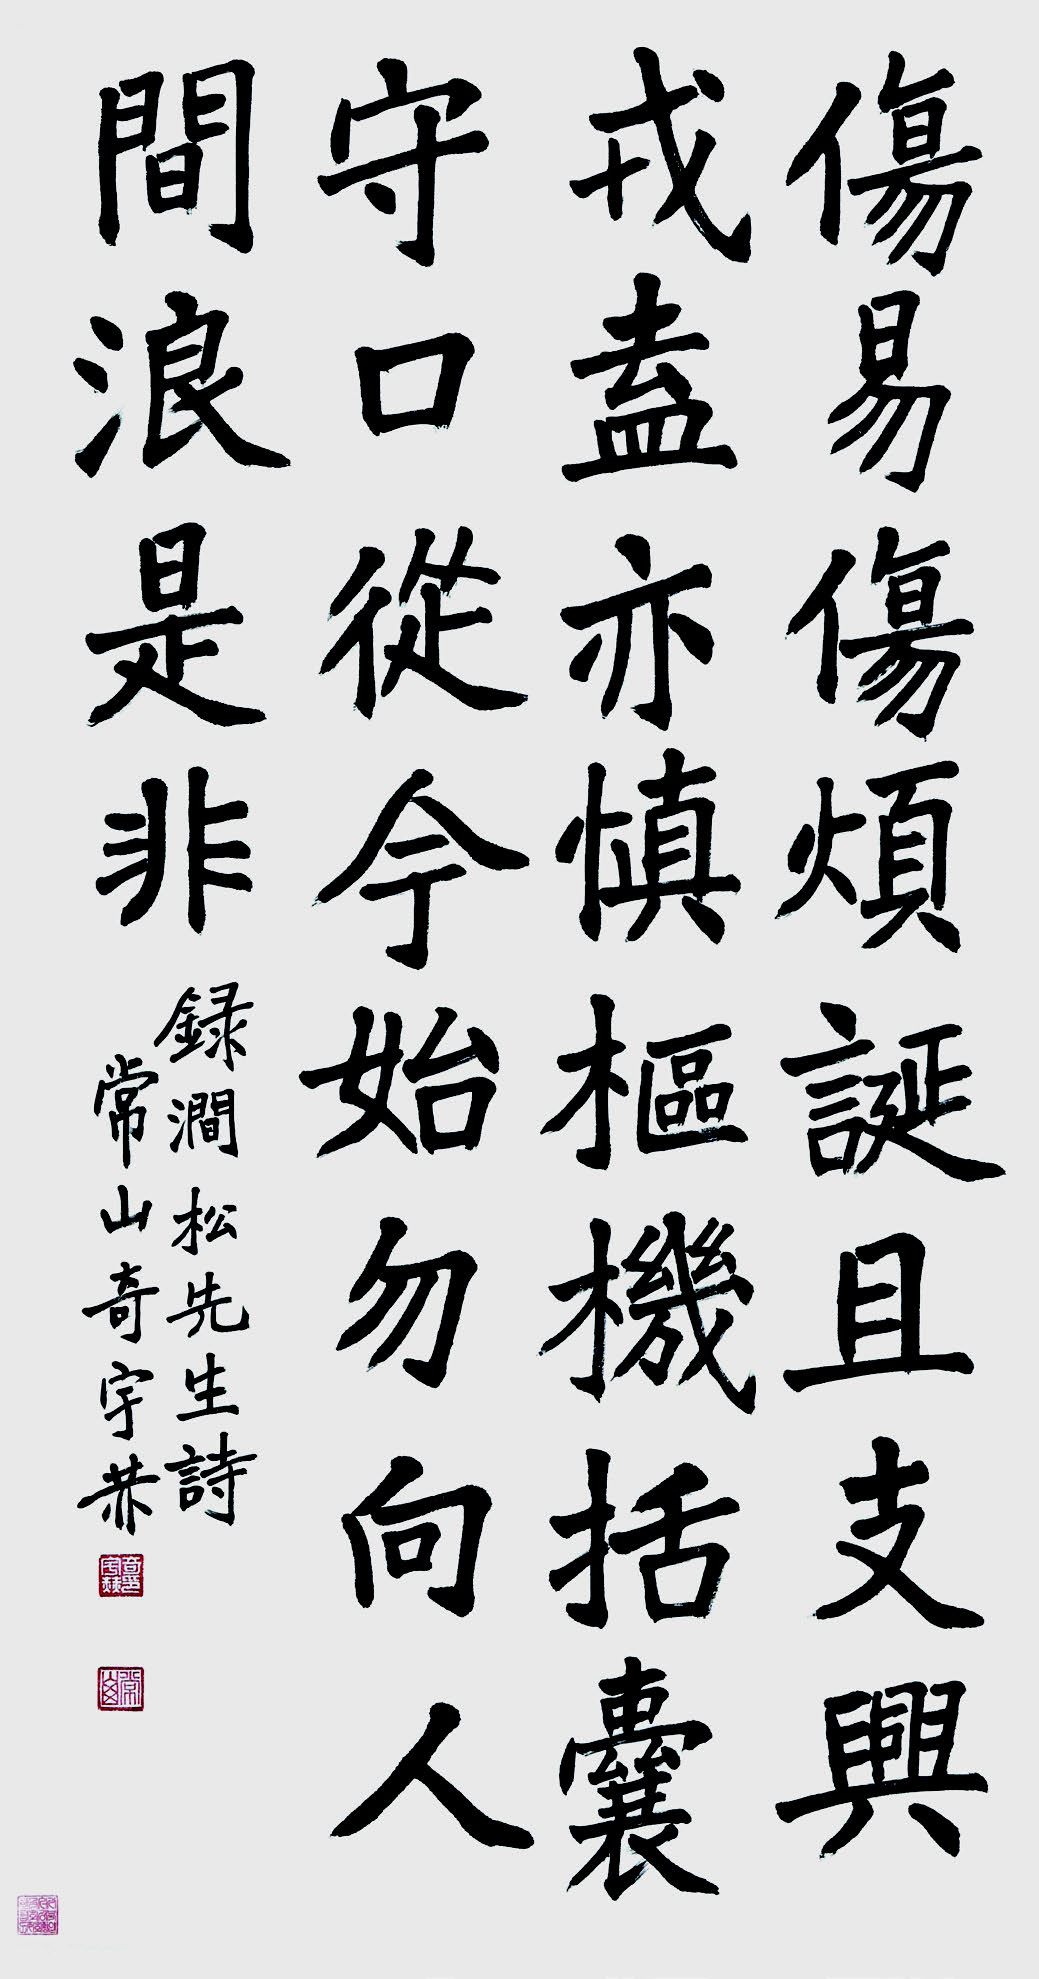 傷易傷煩誕且支興
戎盍亦慎樞機括囊
守口從今始勿向人
間浪是非
録澗松先生詩
常山奇宇恭